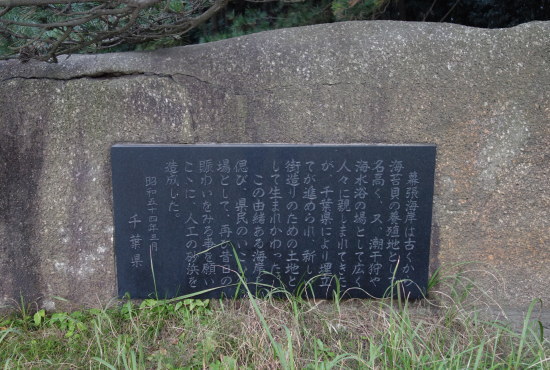 幕張海岸は古くから
海苔貝の養殖地として
名高く、又、潮干狩や
海水浴の場として広く
人々に親しまれてきた
が、千葉県により埋立
てが進められ、新しい
街造りのための土地と
して生まれかわった。
この由緒ある海岸を
偲び、県民のいこいの
場として、再び昔日の
賑わいをみる事を願い
ここに、人工の砂浜を
造成した。
昭和五十四年三月
千葉県